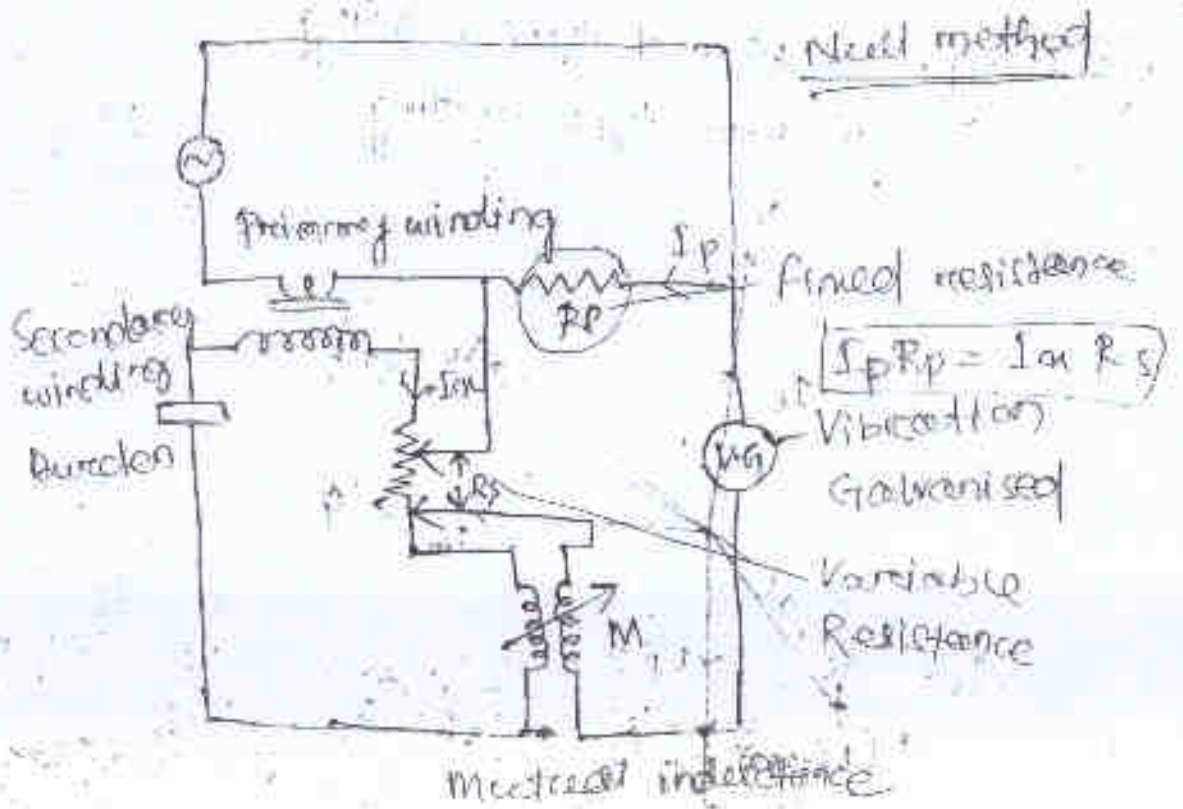 Null method
Primary winding
Ip
Rp
fixed resistance
IpRp = Is Rs
Secondary
winding
Burden
V.G
Vibration
Galvanised
Rs
Variable
Resistance
M
Mutual inductance